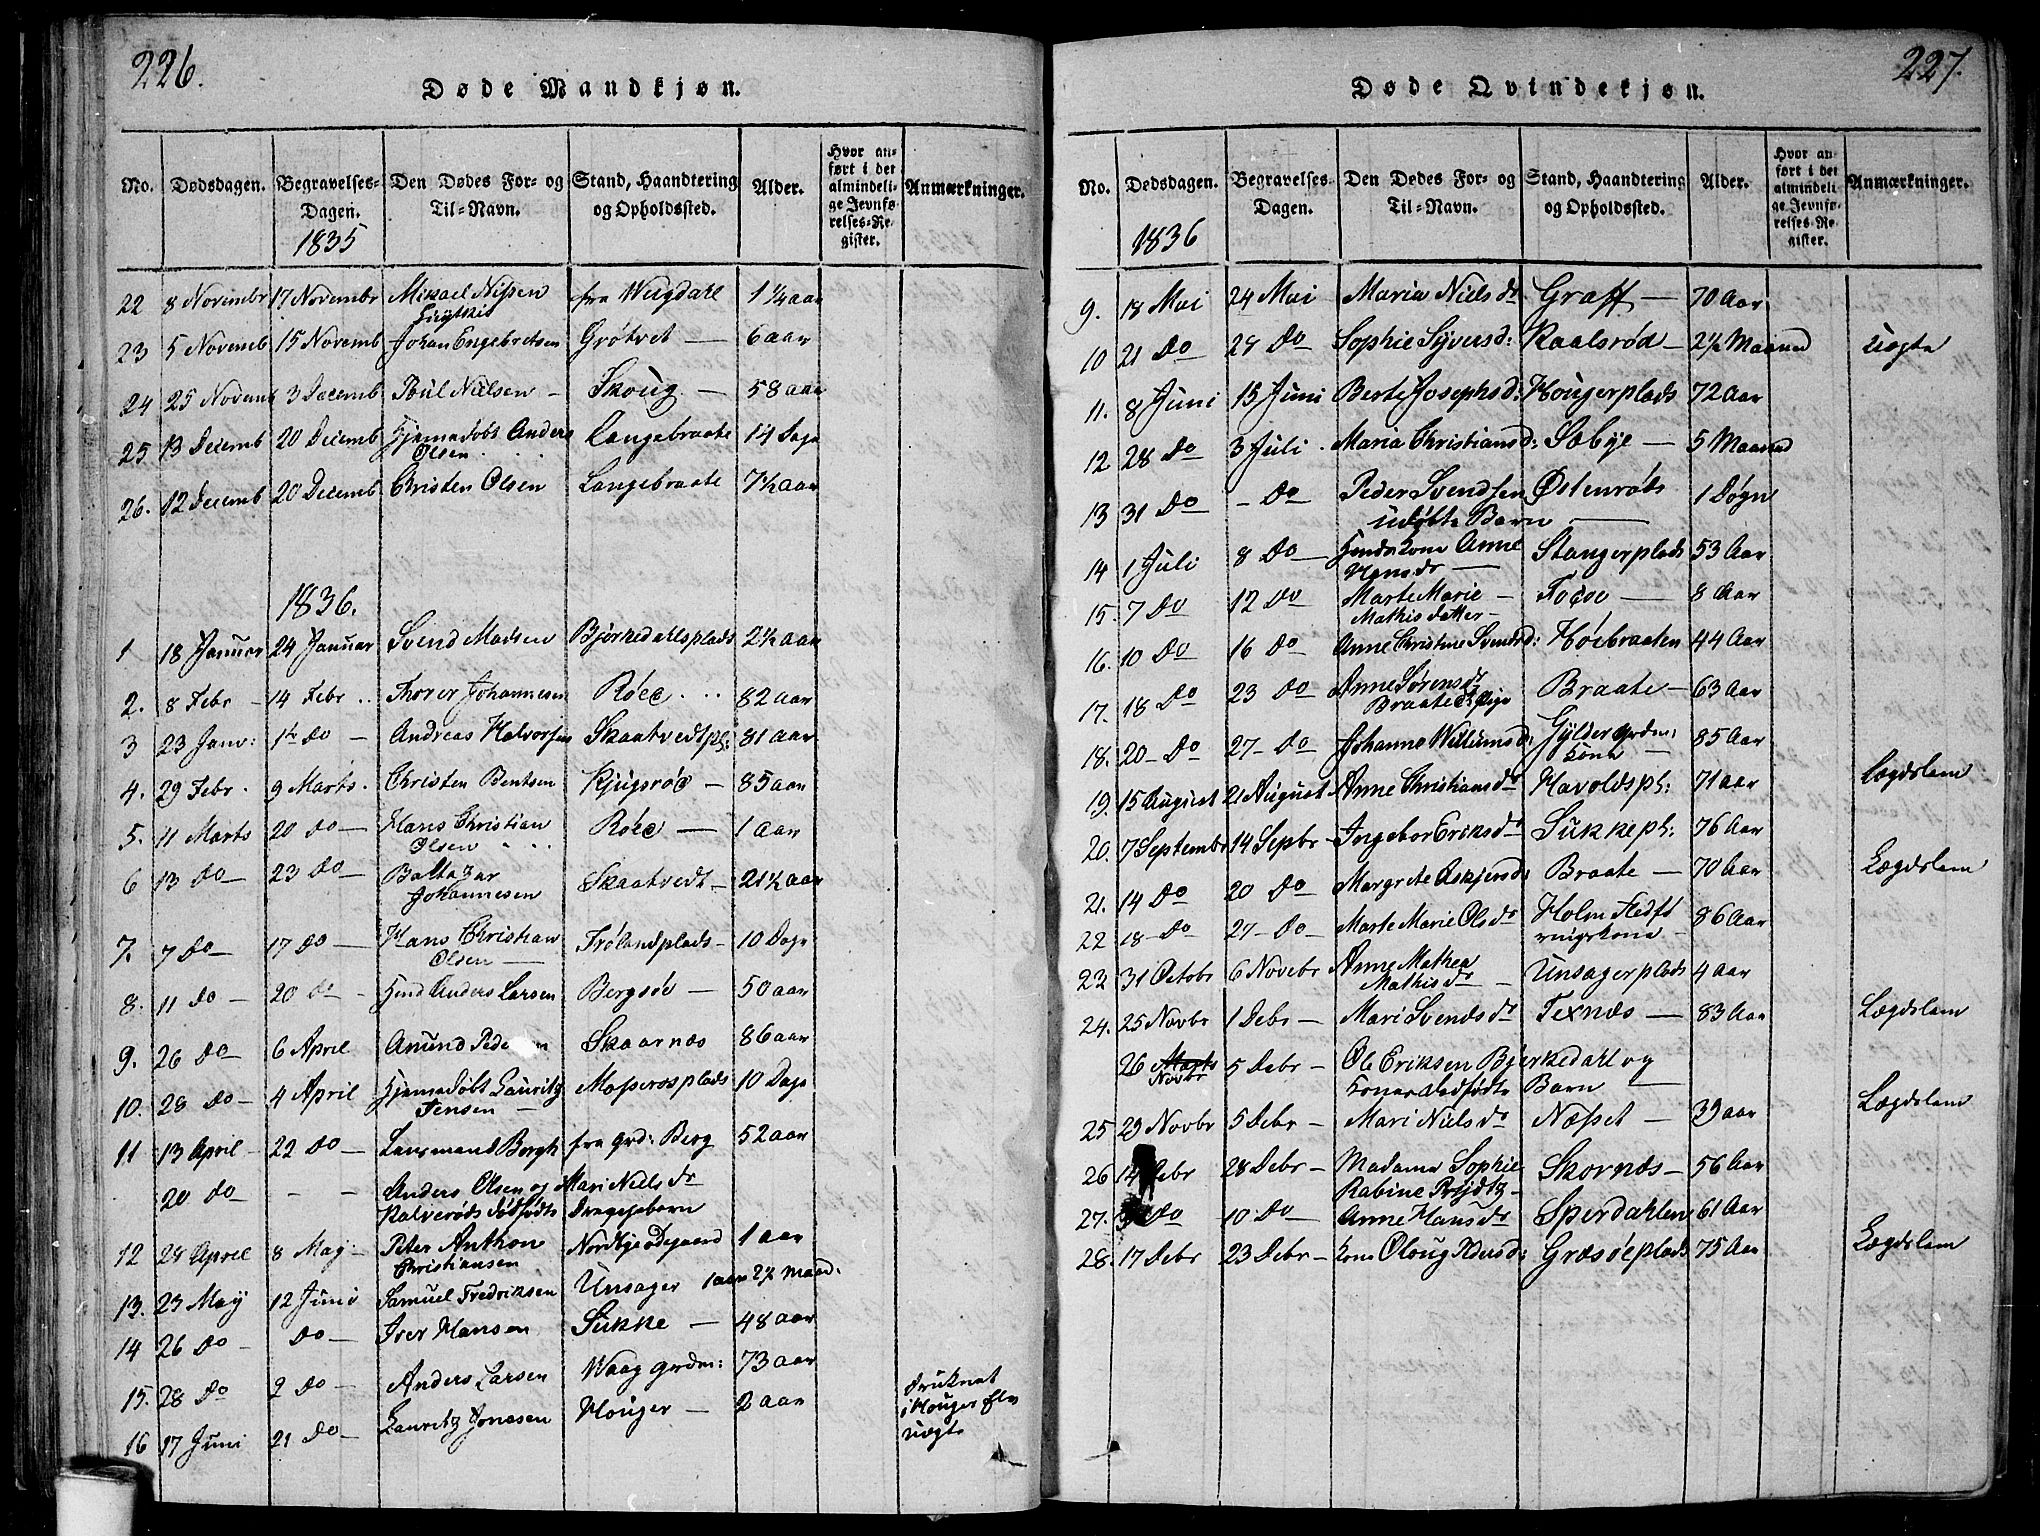 226.
Døde Mandkjøn.
No. Dødsdagen. Begravelses-Dagen. Den Dødes For- og Til-Navn. Stand, Haandtering og Opholdssted. Alder. Hvor anført i det almindelige Jevnførelses-Register. Anmærkninger.
1835
22 8 Novembr 17 Novembr Mikael Nissen fra Wugdahl 1 1/4 aar
23 5 Novemb 15 Novemb Johan Engebretsen Grøtvet — 6 aar
24 25 Novemb 3 Decemb Poul Nielsen — Skoug — 58 aar
25 13 Decemb 20 Decemb Hjemmedøbt Anders Langebraate 14 Dage
Olsen
26. 12 Decemb 20 Decemb Christen Olsen Langebraate 7 1/2 aar
1836.
1 18 Januar 24 Januar Svend Madsen Bjerkedahlsplads 2 1/2 aar
2. 8 Febr — 14 Febr Thorer Johannesen Røed 82 aar
3 23 Janv: 14 Do — Andreas Halvorsen Skaatvedtpl: 81 aar
4. 29 Febr. 9 Marts. Christen Bentsen Kjugsrød — 85 aar
5. 11 Marts 20 Do — Hans Christian Røed — 1 aar
Olsen
6 13 Do — 23 Do — Baltazar Skaatvedt — 21 1/2 aar
Johannesen
7. 7 Do — 17 Do — Hans Christian Frølandplads — 10 Dage
Olsen —
8. 11 Do — 20 Do — Anders Larsen Bergsøe — 50 aar
9. 26 Do — 6 April Anund Skaarnæs 86 aar
10. 28 Do — 4 April Hjemmedøbt Lauritz Moserosplads 10 Dage
Jensen —
11 13 April — 22 Do — Lansmand Borgh fra grd: Berg 52 aar
20 Do — — Anders Olsen og Mari Niels dr
Kalverøds dødfødte Drengebarn
12 28 April 8 May — Peter Anthon Nordbye Ødegaard 1 aar
Christiansen
13. 23 May 12 Juni Samuel Fredriksen Unsager 1 aar 2 1/2 Maad:
14 26 Do — Do — Iver Hansen Sukke — 48 aar
15. 28 Do 2 Do — Anders Larsen Waag grdm: 73 aar
16 17 Juni 21 Do — Lauritz Jonasen Houger — 2 aar druknet
i Houger Elv
uægte
227.
Døde Qvindekjøn.
No. Dødsdagen. Begravelses-Dagen. Den Dødes For- og Til-Navn. Stand, Haandtering og Opholdssted. Alder. Hvor anført i det almindelige Jevnførelses-Register. Anmærkninger.
1836
9. 18 Mai 24 Mai Maria Niels dr Graff — 70 Aar
10 21 Do 28 Do Sophie Syversd: Raalsrød — 2 1/2 Maaned uægte
11. 8 Juni 15 Juni Berte Josephsd: Hougerplads 72 Aar
12 28 Do 3 Juli Maria Christiansd: Sæbye — 5 Maaned
13 31 Do — Do Peder Svendsen Østenrøds 1 Døgn
udøbte Barn —
14 1 Juli 8 Do — Anne Stangerplads 53 Aar
Hansdr —
15. 7 Do 12 Do Marte Marie — Focoe — 8 Aar
Mathisdatter —
16. 10 Do 16 Do Anne Christine Svendsd: Høiebraaten 44 Aar
17. 18 Do 23 Do Anne Sørensdr Braate — 63 Aar
Braate Pige
18. 20 — Do 27 — Do Johanne Willumsd: Gylder grdm: 85 Aar
Kone
19. 15 August 21 August Anne Christiansdr Havoldspl: 71 aar Lægdslem
20. 7 Septembr 14 Sepbr — Ingebor Eriksdr Sukkepl: 76 Aar
21. 14 Do 20 Do Margrete Askjersdr Braate — 70 Aar Lægdslem
22 18 — Do 27 — Do Marte Marie Olsdr Holm 86 Aar
23 31 Octobr 6 Novebr Anne Mathea Unsagerplads 4 aar
Mathisdr —
24. 25 Novbr 1 Debr — Mari Svendsdr Texnæs — 83 Aar Lægdslem
26 Novbr 5 Debr — Ole Eriksen Bjerkedahl og
Kones dødfødte Barn —
25 29 Novbr 5 Debr — Mari Nielsdr Næset — 39 aar Lægdslem
26 14 Debr 28 Debr — Madame Sophie Skornæs — 56 Aar
Rabine Prydtz —
27. Do 10 Do — Anne Hansdr Sperdahlen 61 Aar
28. 17 Debr 23 Debr — Kone Oloug Græsøeplads 75 Aar Lægdslem